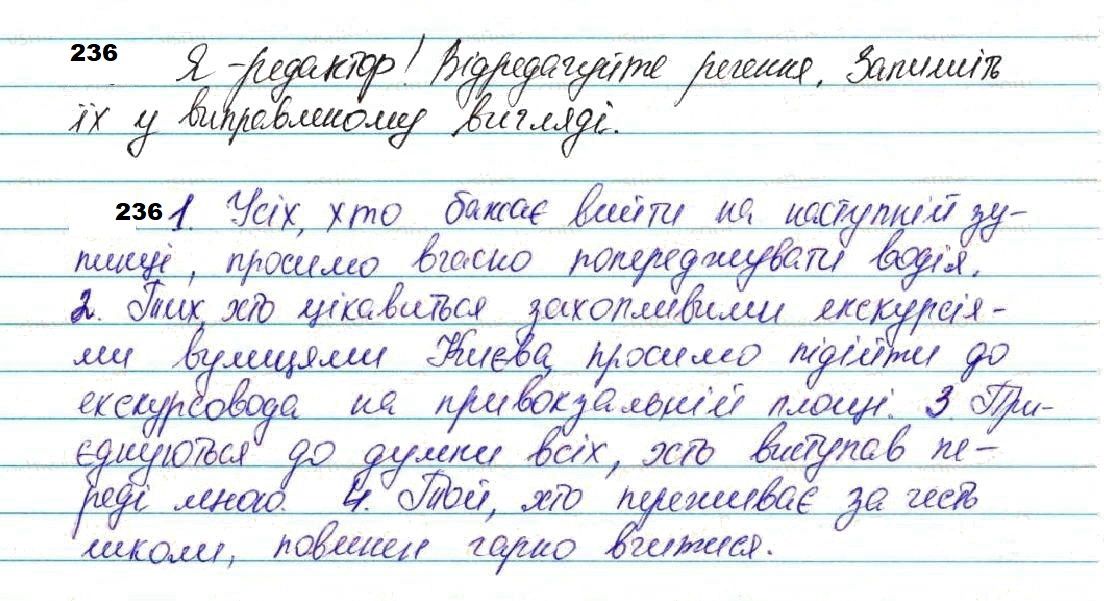 236 Я - редактор! Відредагуйте речення. Запишіть
їх у виправленому вигляді.
236 1. Усіх, хто бажає вийти на наступній зу-
пинці, просимо вчасно попереджувати водія.
2. Тих, хто цікавиться захопливими екскурсія-
ми вулицями Києва, просимо підійти до
екскурсовода на привокзальній площі. 3. При-
єднуються до думки всіх, хто виступав пе-
реді мною. 4. Той, хто переживає за честь
школи, повинен гарно вчитися.